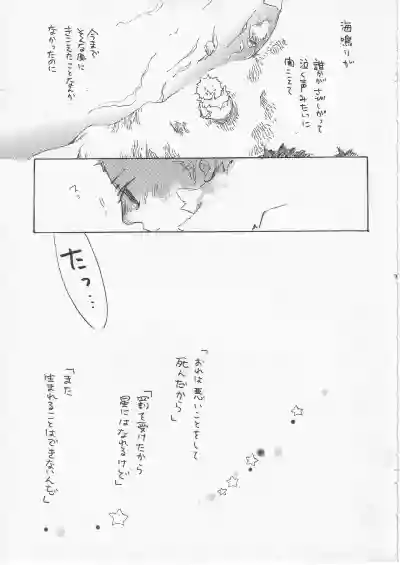 海鳴りが
誰かが さびしがって
泣く声みたいに
聞こえて
今まで
そんな風に
きこえたことなんか
なかったのに
たっ…
「おれは悪いことをして
死んだから」
「罰を受けたから
星にはなれるけど」
「また
生まれることはできないんだ」